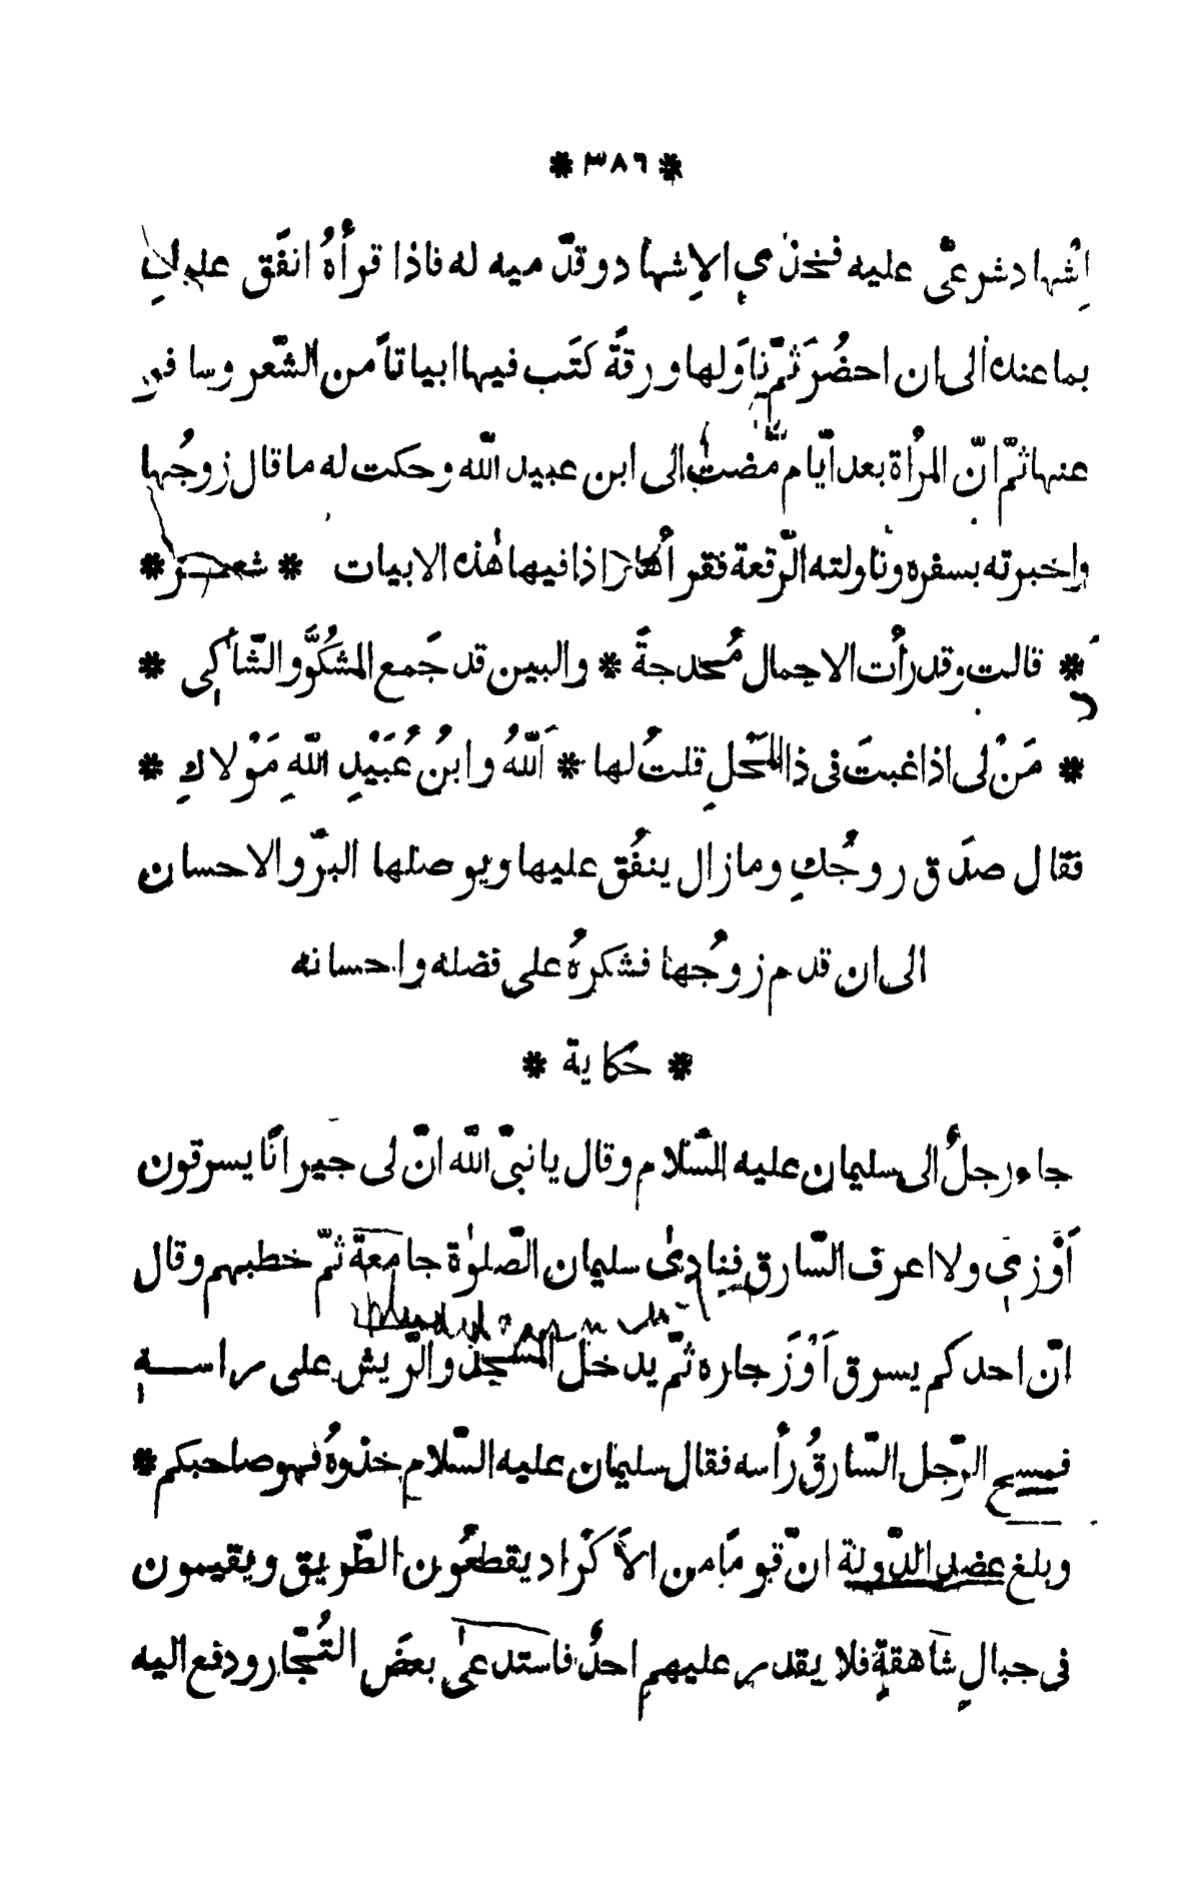 * ٣٨٦ *
اِشهاد شرعىّ عليه فخذي الاِشهاد وقدّميه له فاذا قرأهُ انفَق عليكِ
بما عنده الى ان احضُرَ ثمّ ناوَلها ورقةً كتَب فيها ابياتاً من الشّعر وسافر
عنها ثمّ انّ المرأة بعد ايّام مّضت الى ابن عبيد اللّه وحكت له ما قال زوجُها
واخبرته بسفره وناولته الرّقعة فقرأها واذا فيها هٰذه الابيات * شعر *
* قالت وقد رأت الاجمال مُحدجةً * والبين قد جَمع المشكُوَّ والشّاكِى *
* مَنْ لى اذا غبتَ فى ذا المَحْلِ قلتُ لها * اَللّهُ وابنُ عُبَيْدِ اللّهِ مَوْلاكِ *
فقال صدَق زوجُكِ ومازال ينفُق عليها ويوصلها البرّ والاحسان
الى ان قدم زوجُها فشكرهُ على فضله واحسانه
* حكاية *
جاء رجلٌ الى سليمان عليه السّلام وقال يا نبىّ اللّه انّ لى جيرانًا يسرقون
اَوْزي ولا اعرف السّارق فنادىٰ سليمان الصّلوٰة جامعة ثمّ خطبهم وقال
انّ احدكم يسرق اَوْزَ جاره ثمّ يدخل المسجد والرّيش على راسهِ
فمسح الرّجل السّارقُ رأسه فقال سليمان عليه السّلام خذوهُ فهو صاحبكم *
وبلغ عضد الدّولة انّ قومًا من الأكراد يقطعُون الطّريق ويقيمون
فى جبالٍ شاهقةٍ فلا يقدر عليهم احدٌ فاستدعىٰ بعضَ التُجّار ودفع اليه